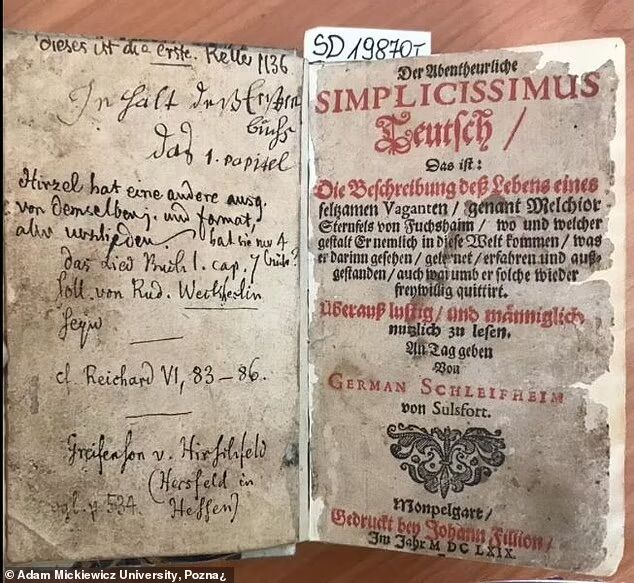 dieses ist die erste. Keller 1136
Inhalt deß Ersten
buchs
das 1. Capitel
Hirzel hat eine andere ausg.
von demselben j. und format,
aber verschieden. hat sie nur 4 bücher?
das Lied Buch 1. cap. 7
soll von Rud. Weckherlin
seyn
cf. Reichard VI, 83–86.
Greifenson v. Hirschfeld
(Hersfeld in
Hessen)
vgl. p 534.
SD 19870 I
Der Abentheurliche
SIMPLICISSIMUS
Teutsch /
Das ist:
Die Beschreibung deß Lebens eines
seltzamen Vaganten / genant Melchior
Sternfels von Fuchshaim / wo und welcher
gestalt Er nemlich in diese Welt kommen / was
er darinn gesehen / gelernet / erfahren und auß-
gestanden / auch warumb er solche wieder
freywillig quittirt.
Überauß lustig / und männiglich
nutzlich zu lesen.
An Tag geben
Von
GERMAN SCHLEIFHEIM
von Sulsfort.
Monpelgart /
Gedruckt bey Johann Fillion /
Im Jahr M DC LXIX.
© Adam Mickiewicz University, Pozna¿